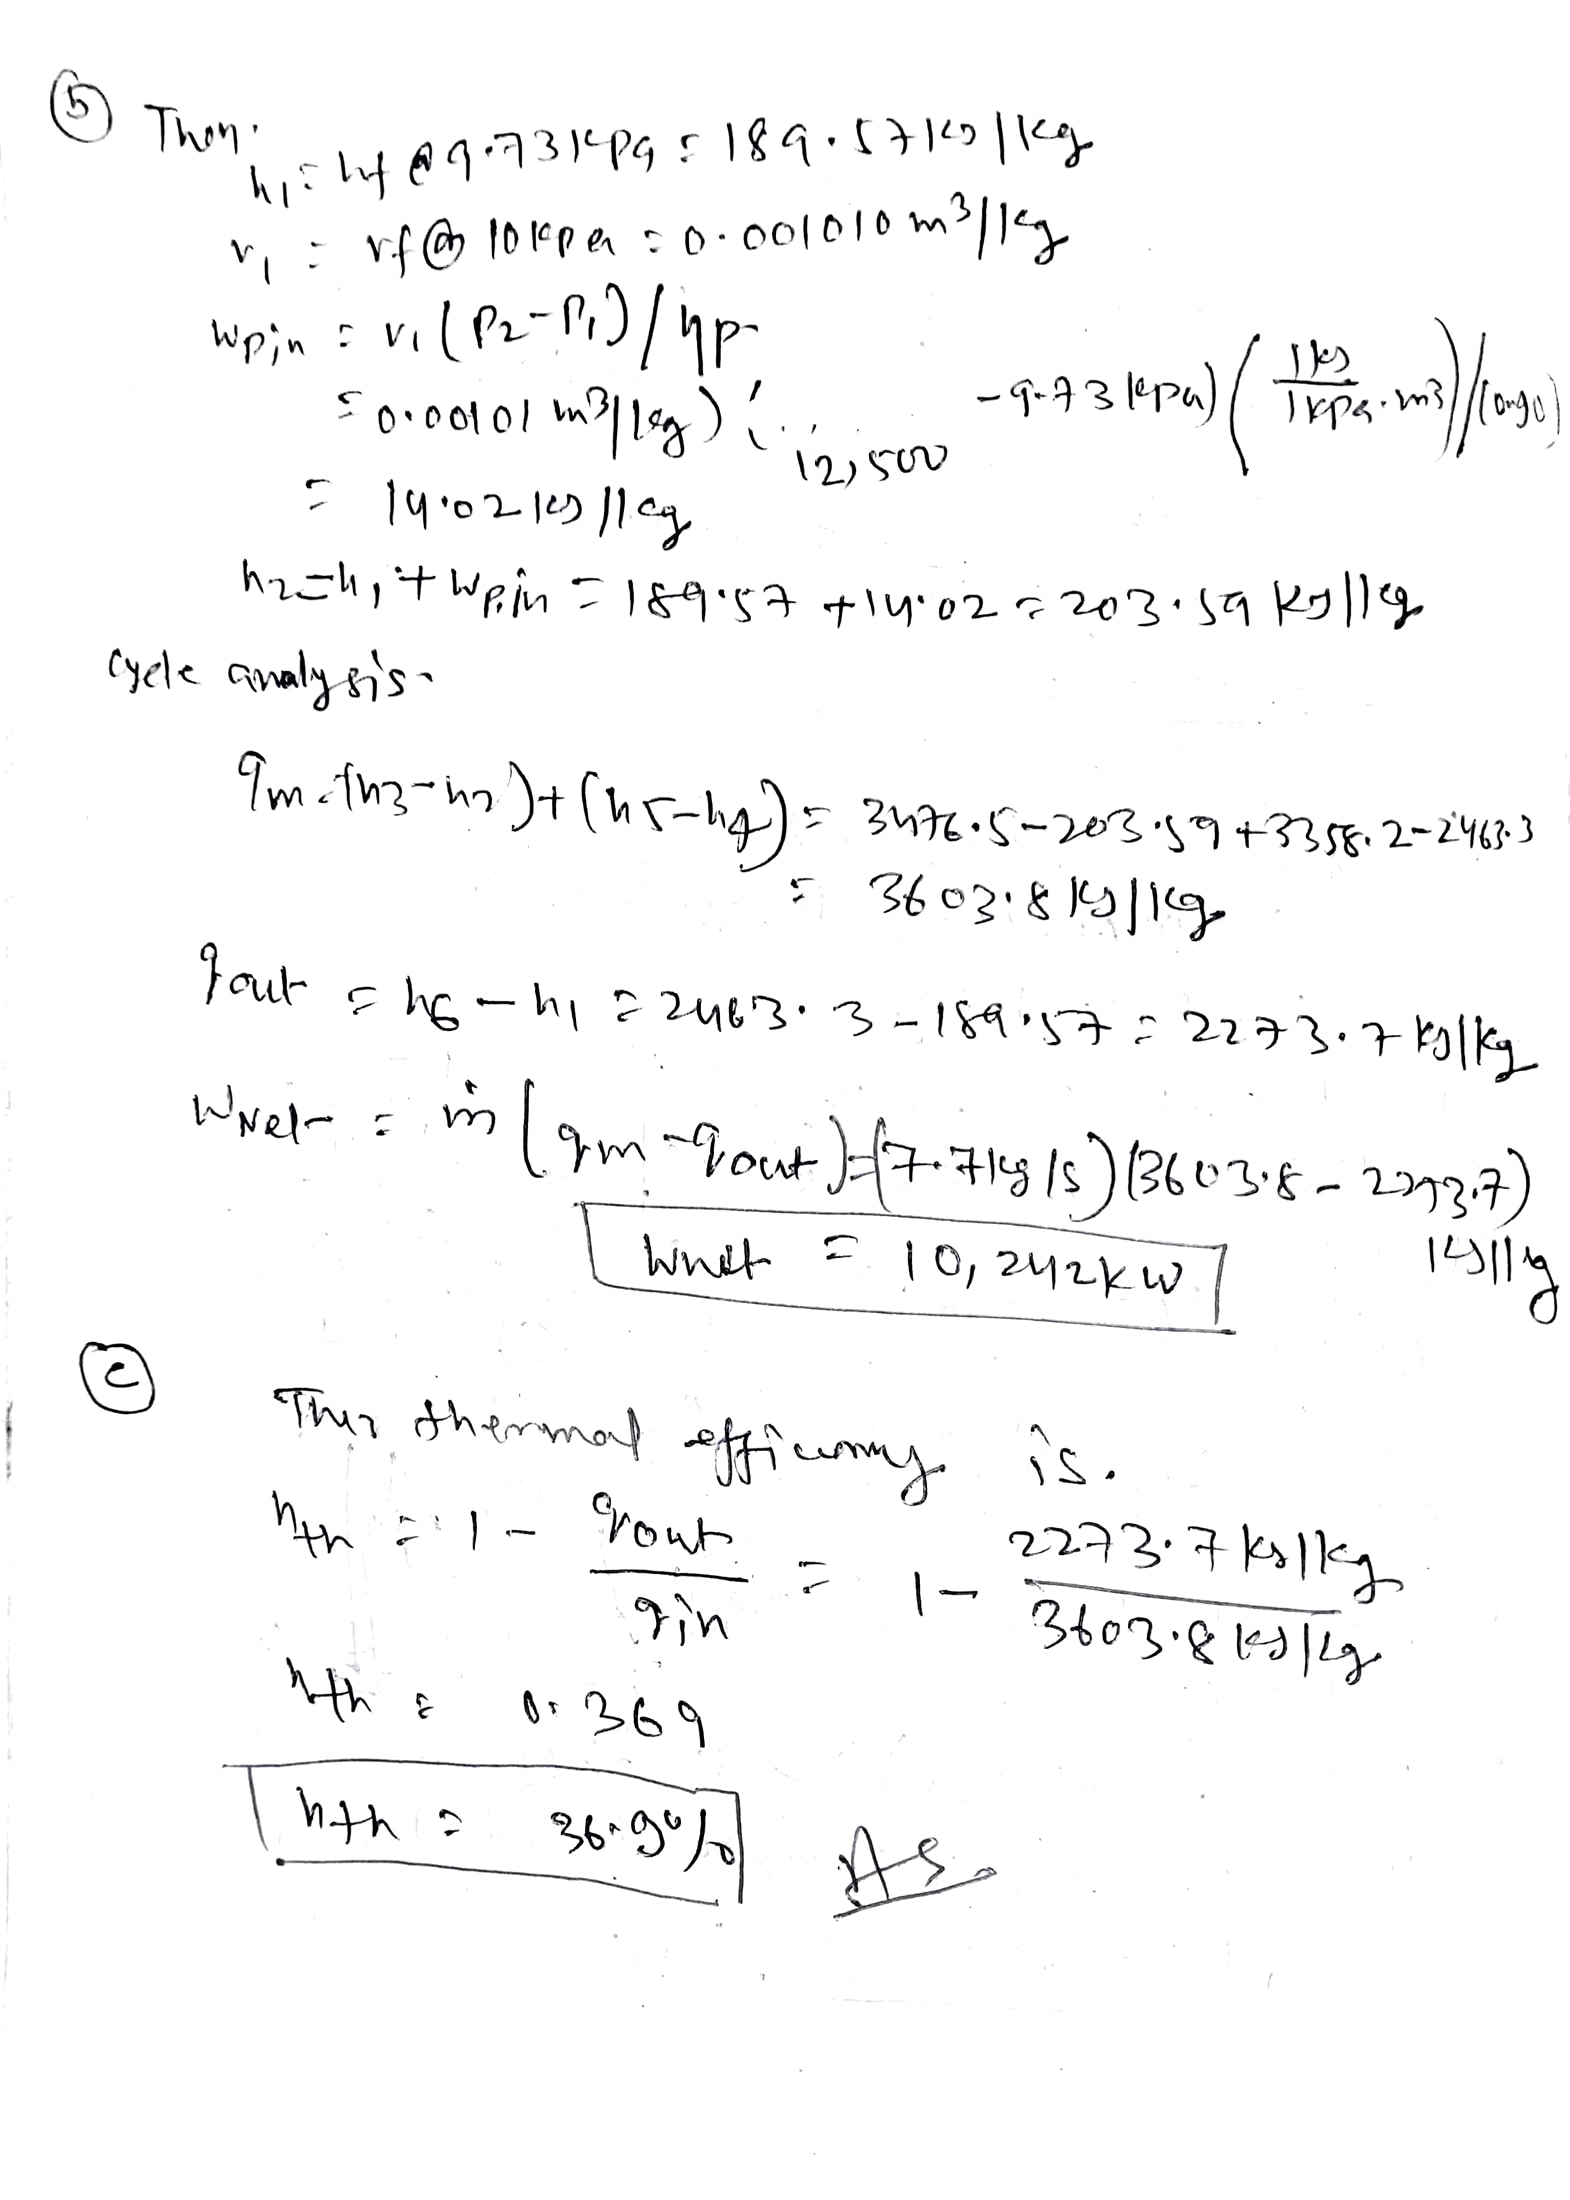 (b) Then.
h₁ = hf @ 9.73 kpa = 189.57 kJ/kg
v₁ = vf @ 10 kpa = 0.001010 m³/kg
Wpin = v₁(P₂-P₁)/ηp
= 0.00101 m³/kg) ( 12,500 -9.73 kpa) (1kJ/1kpa.m³)/(0.90)
= 14.02 kJ/kg
h₂=h₁+Wp.in = 189.57 +14.02 = 203.59 kJ/kg
cycle analysis.
qin = (h3-h2)+(h5-h4) = 3476.5-203.59+3358.2-2463.3
= 3603.8 kJ/kg
qout = h6-h1 = 2463.3-189.57 = 2273.7 kJ/kg
WNet = ṁ (qin-qout)=(7.7kg/s)(3603.8-2273.7) kJ/kg
Wnet = 10,242kW
(c)
This thermal efficiency is.
ηth = 1 - qout/qin = 1 - 2273.7 kJ/kg / 3603.8 kJ/kg
ηth = 0.369
ηth = 36.9%